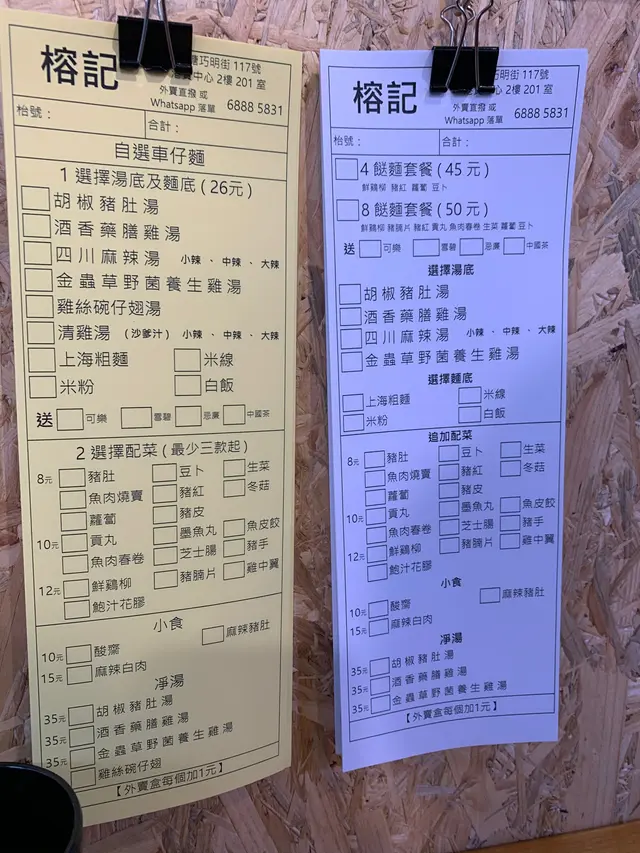 榕記
塘巧明街 117號
中心 2樓 201 室
外賣直撥 或
Whatsapp 落單 6888 5831
枱號：
合計：
自選車仔麵
1 選擇湯底及麵底 (26元)
胡椒豬肚湯
酒香藥膳雞湯
四川麻辣湯 小辣、中辣、大辣
金蟲草野菌養生雞湯
雞絲碗仔翅湯
清雞湯 (沙爹汁) 小辣、中辣、大辣
上海粗麵 米線
米粉 白飯
送 可樂 雪碧 忌廉 中國茶
2 選擇配菜 (最少三款起)
8元 豬肚 豆卜 生菜
魚肉燒賣 豬紅 冬菇
蘿蔔 豬皮
10元 貢丸 墨魚丸 魚皮餃
魚肉春卷 芝士腸 豬手
12元 鮮鷄柳 豬腩片 雞中翼
鮑汁花膠
小食
10元 酸齋 麻辣豬肚
15元 麻辣白肉
凈湯
35元 胡椒豬肚湯
35元 酒香藥膳雞湯
35元 金蟲草野菌養生雞湯
雞絲碗仔翅
【外賣盒每個加1元】
榕記
巧明街 117號
中心 2樓 201 室
外賣直撥 或
Whatsapp 落單 6888 5831
枱號：
合計：
4 餸麵套餐 (45 元)
鮮鷄柳 豬紅 蘿蔔 豆卜
8 餸麵套餐 (50 元)
鮮鷄柳 豬腩片 豬紅 貢丸 魚肉春卷 生菜 蘿蔔 豆卜
送 可樂 雪碧 忌廉 中國茶
選擇湯底
胡椒豬肚湯
酒香藥膳雞湯
四川麻辣湯 小辣、中辣、大辣
金蟲草野菌養生雞湯
選擇麵底
上海粗麵 米線
米粉 白飯
追加配菜
8元 豬肚 豆卜 生菜
魚肉燒賣 豬紅 冬菇
蘿蔔 豬皮
10元 貢丸 墨魚丸 魚皮餃
魚肉春卷 芝士腸 豬手
12元 鮮鷄柳 豬腩片 雞中翼
鮑汁花膠
小食
10元 酸齋 麻辣豬肚
15元 麻辣白肉
凈湯
35元 胡椒豬肚湯
35元 酒香藥膳雞湯
35元 金蟲草野菌養生雞湯
【外賣盒每個加1元】